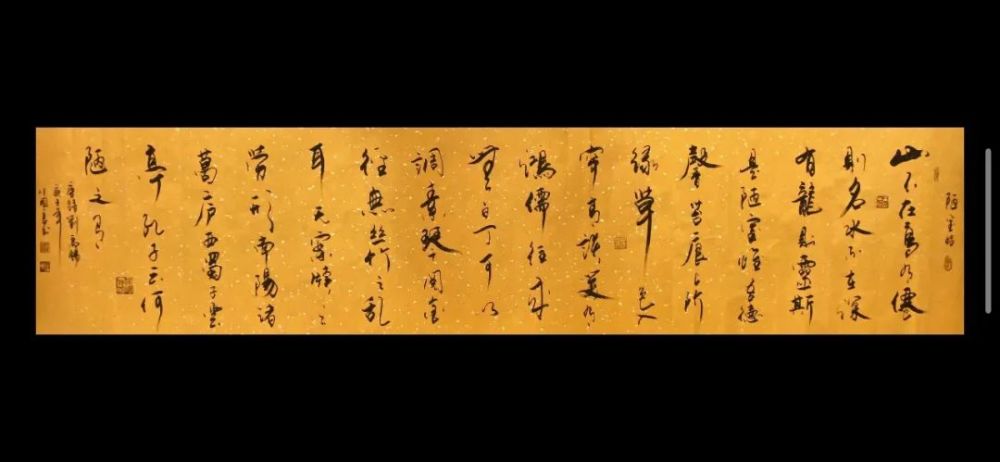 陋室銘
山不在高有僊
則名水不在深
有龍則靈斯
是陋室惟吾德
馨苔痕上階
綠草色入
青談笑有
鴻儒往來
無白丁可以
調素琴閱金
經無絲竹之亂
耳无案牘之
勞形南陽諸
葛廬西蜀子雲
亭孔子云何
陋之有
唐詩劉禹錫